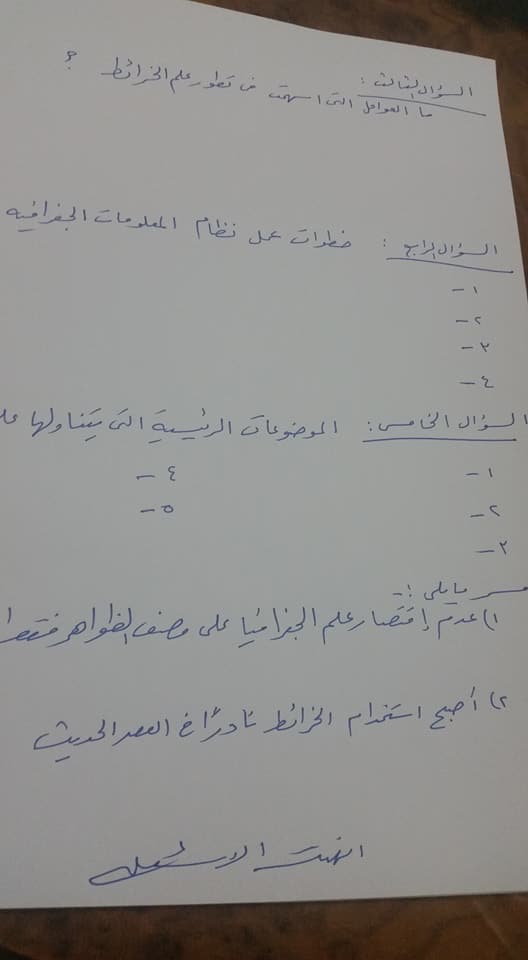 السؤال الثالث :
ما العوامل التى اسهمت فى تطور علم الخرائط ؟
السؤال الرابع : خطوات عمل نظام المعلومات الجغرافيه
١-
٢-
٣-
٤-
السؤال الخامس : الموضوعات الرئيسية التى يتناولها
١- ٤-
٢- ٥-
٣-
فسر ما يلى :-
١) عدم إقتصار علم الجغرافيا على وصف الظواهر فقط
٢) أصبح استخدام الخرائط نادرًا فى العصر الحديث
انتهت الاسئله